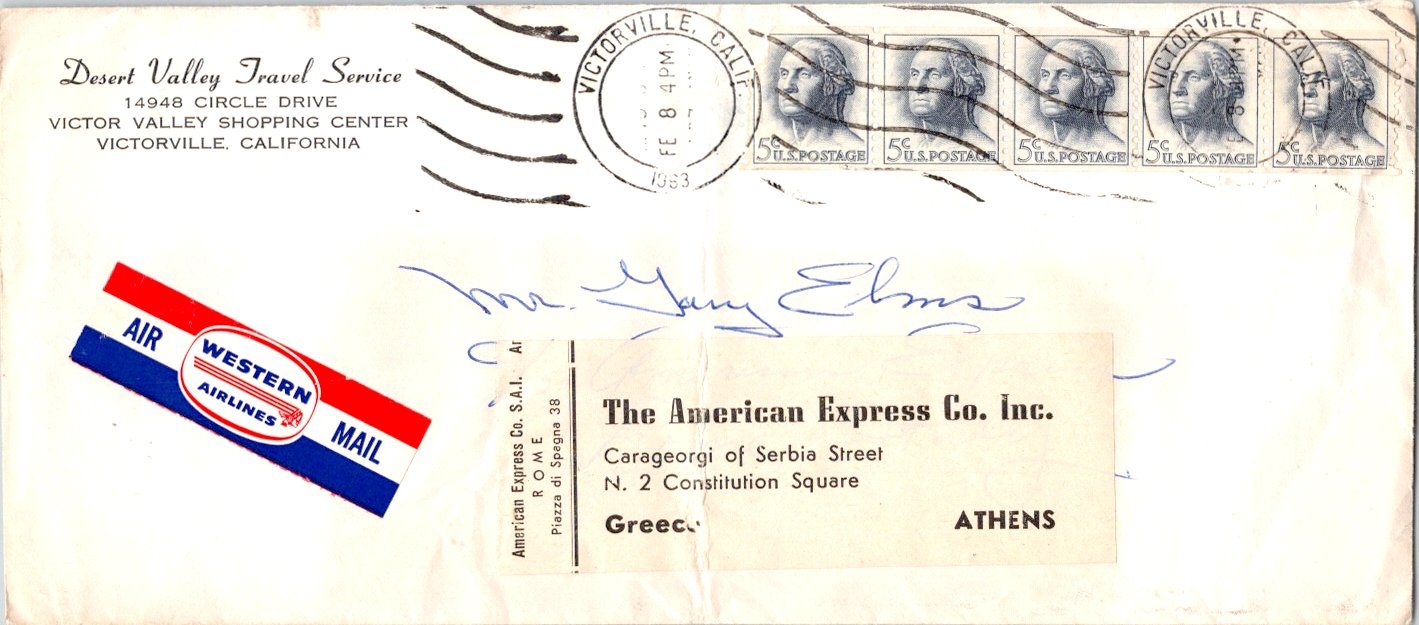 Desert Valley Travel Service
14948 CIRCLE DRIVE
VICTOR VALLEY SHOPPING CENTER
VICTORVILLE, CALIFORNIA
VICTORVILLE, CALIF.
FE 8 4 PM
1963
5c U.S. POSTAGE
5c U.S. POSTAGE
5c U.S. POSTAGE
5c U.S. POSTAGE
5c U.S. POSTAGE
VICTORVILLE, CALIF
Mr. Gary Elms
AIR MAIL
WESTERN
AIRLINES
American Express Co. S.A.I. Ar
ROME
Piazza di Spagna 38
The American Express Co. Inc.
Carageorgi of Serbia Street
N. 2 Constitution Square
Greece ATHENS